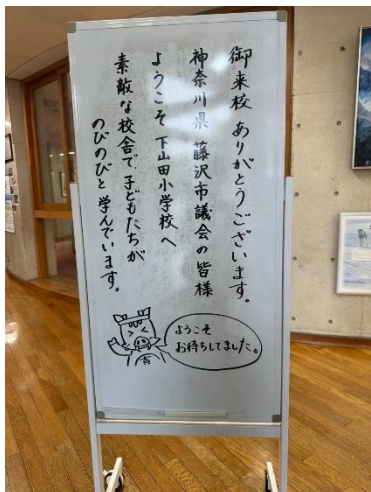 御来校 ありがとうございます。
神奈川県 藤沢市議会の皆様
ようこそ 下山田小学校へ
素敵な校舎で、子どもたちが
のびのびと 学んでいます。
ようこそ
お待ちしてました。